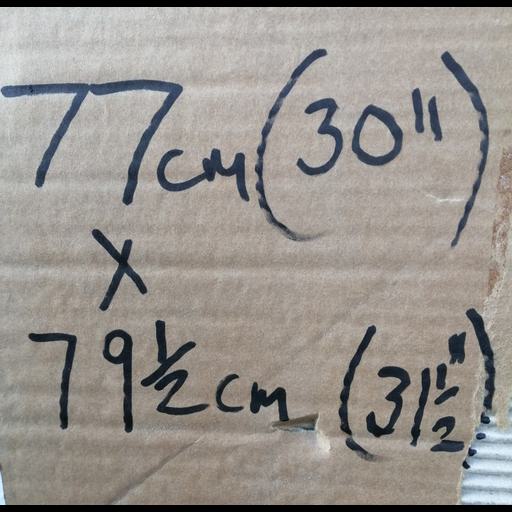 77cm (30")
X
79 1/2 cm (31 1/2")